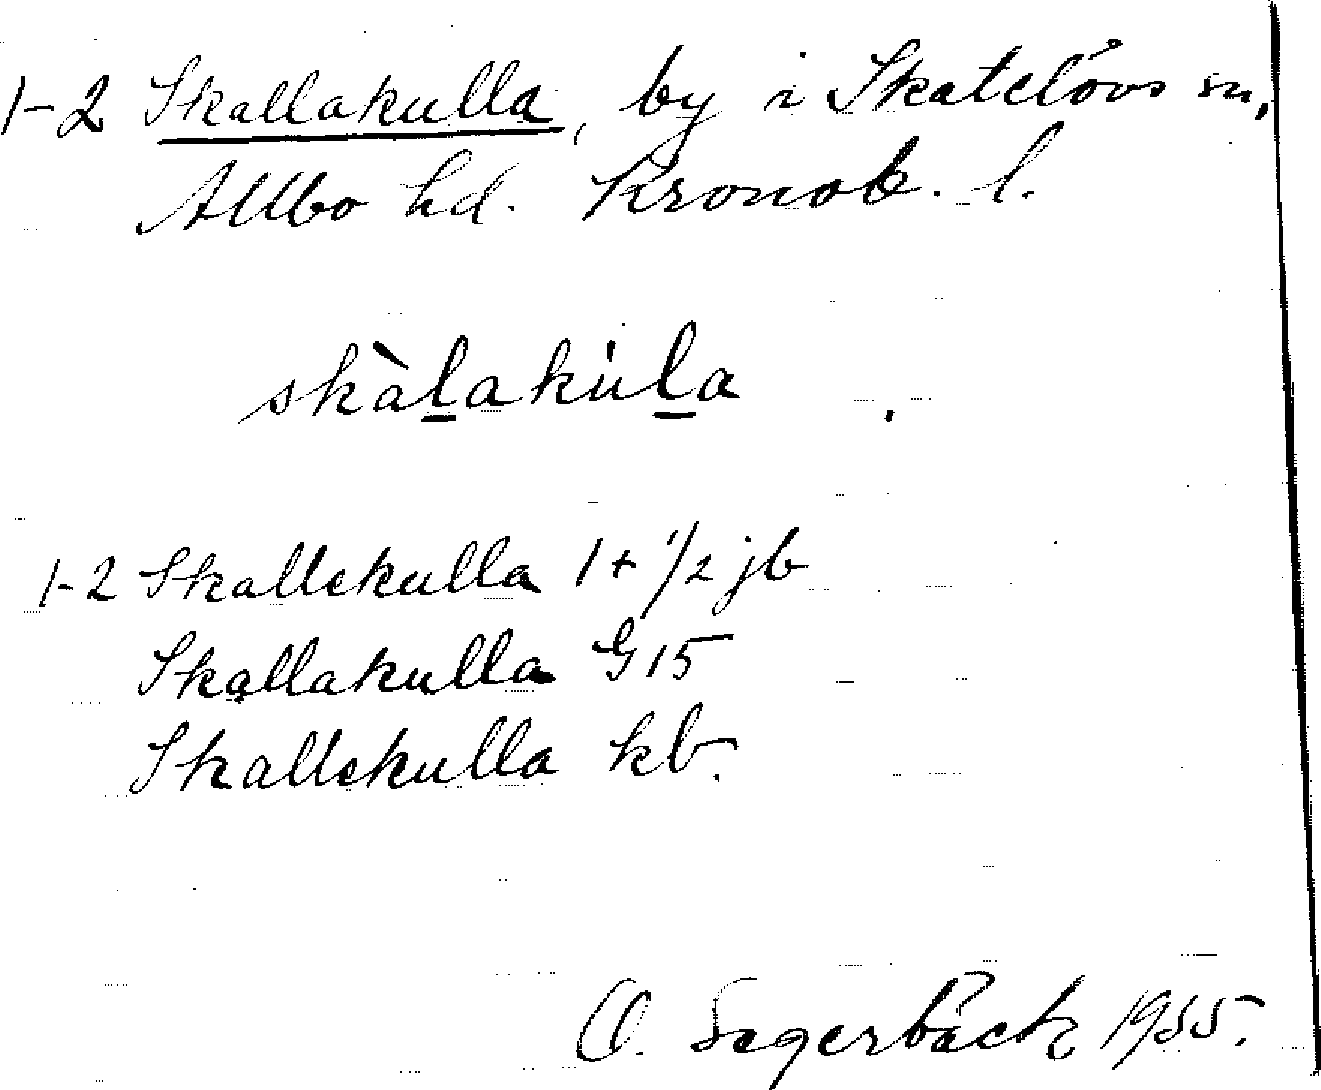 1-2 Skallakulla, by i Skatelövs sn,
Allbo hd. Kronob. l.
skàl̲akúl̲a
1-2 Skallekulla 1+1/2 jb
Skallakulla G15
Skallekulla kb.
O. Segerbäck 1955.